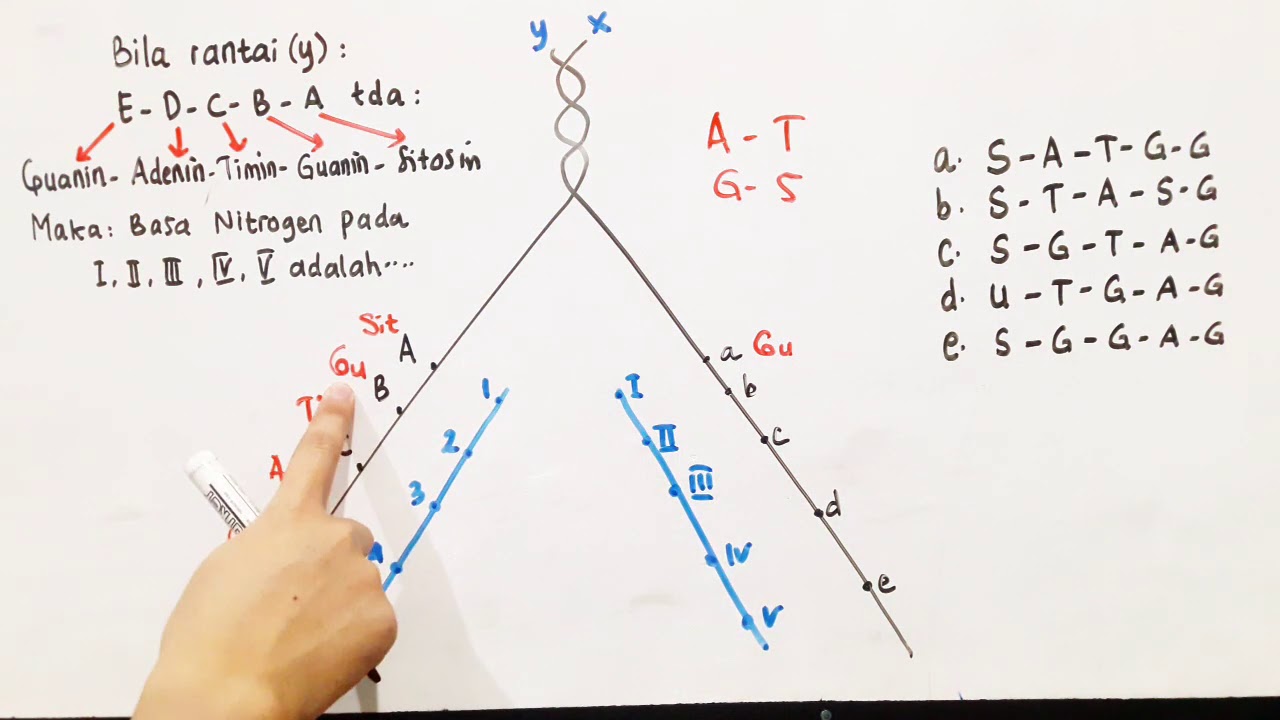 Bila rantai (y) :
E - D - C - B - A tda :
Guanin - Adenin - Timin - Guanin - Sitosin
Maka: Basa Nitrogen pada
I, II, III, IV, V adalah....
y x
A - T
G - S
a. S - A - T - G - G
b. S - T - A - S - G
c. S - G - T - A - G
d. U - T - G - A - G
e. S - G - G - A - G
Sit A
Gu B
A
1
2
3
I
II
III
IV
V
a Gu
b
c
d
e